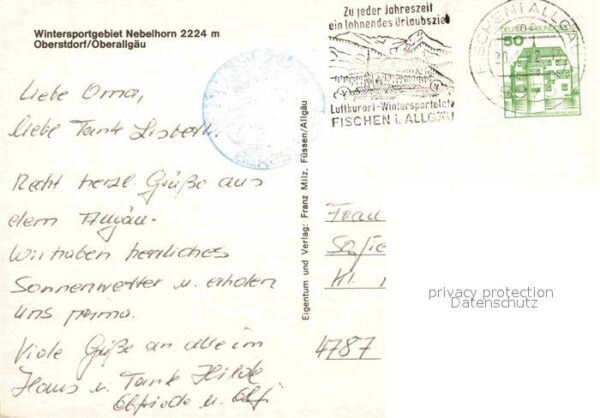 Wintersportgebiet Nebelhorn 2224 m
Oberstdorf/Oberallgäu
Zu jeder Jahreszeit
ein lohnendes Urlaubsziel
Luftkurort-Wintersportplatz
FISCHEN i. ALLGÄU
FISCHEN I ALLGÄU
DEUTSCHE BUNDESPOST
50
Liebe Oma,
liebe Tante Lisbeth.
Recht herzl. Grüße aus
dem Allgäu.
Wir haben herrliches
Sonnenwetter u. erholen
uns prima.
Viele Grüße an alle im
Haus u. Tante Hilde
Elfriede u. Alf
Eigentum und Verlag: Franz Milz, Füssen/Allgäu
Frau
4787
privacy protection
Datenschutz